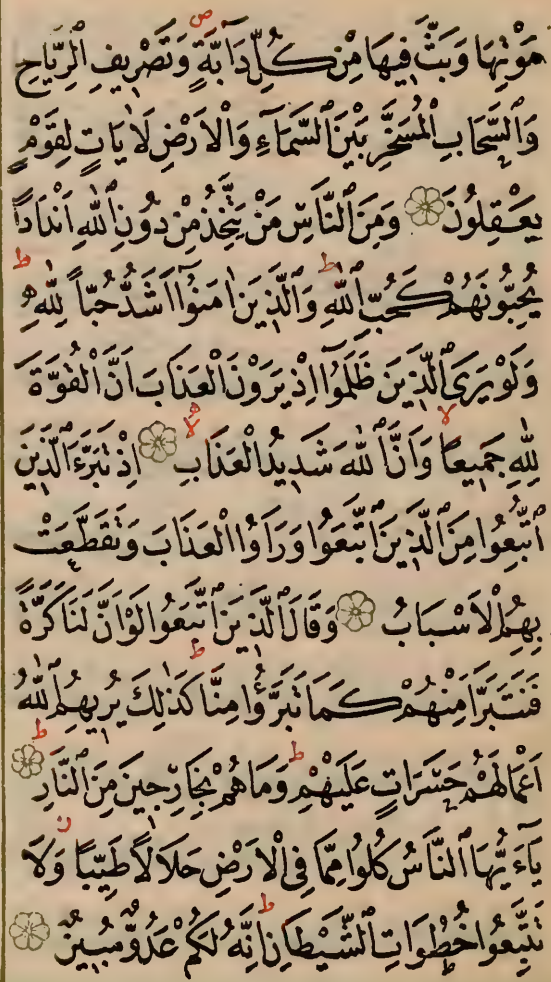 مَوْتِهَا وَبَثَّ فِيهَا مِنْ كُلِّ دَٓابَّةٍ وَتَصْرِيفِ الرِّيَاحِ
وَالسَّحَابِ الْمُسَخَّرِ بَيْنَ السَّمَٓاءِ وَالْاَرْضِ لَاٰيَاتٍ لِقَوْمٍ
يَعْقِلُونَ وَمِنَ النَّاسِ مَنْ يَتَّخِذُ مِنْ دُونِ اللّٰهِ اَنْدَادًا
يُحِبُّونَهُمْ كَحُبِّ اللّٰهِ وَالَّذِينَ اٰمَنُٓوا اَشَدُّ حُبًّا لِلّٰهِ
وَلَوْ يَرَى الَّذِينَ ظَلَمُٓوا اِذْ يَرَوْنَ الْعَذَابَ اَنَّ الْقُوَّةَ
لِلّٰهِ جَمِيعًا وَاَنَّ اللّٰهَ شَدِيدُ الْعَذَابِ اِذْ تَبَرَّءَ الَّذِينَ
اتُّبِعُوا مِنَ الَّذِينَ اتَّبَعُوا وَرَاَوُا الْعَذَابَ وَتَقَطَّعَتْ
بِهِمُ الْاَسْبَابُ وَقَالَ الَّذِينَ اتَّبَعُوا لَوْ اَنَّ لَنَا كَرَّةً
فَنَتَبَرَّاَ مِنْهُمْ كَمَا تَبَرَّؤُا مِنَّا كَذٰلِكَ يُرِيهِمُ اللّٰهُ
اَعْمَالَهُمْ حَسَرَاتٍ عَلَيْهِمْ وَمَا هُمْ بِخَارِجِينَ مِنَ النَّارِ
يَٓا اَيُّهَا النَّاسُ كُلُوا مِمَّا فِي الْاَرْضِ حَلَالًا طَيِّبًا وَلَا
تَتَّبِعُوا خُطُوَاتِ الشَّيْطَانِ اِنَّهُ لَكُمْ عَدُوٌّ مُبِينٌ